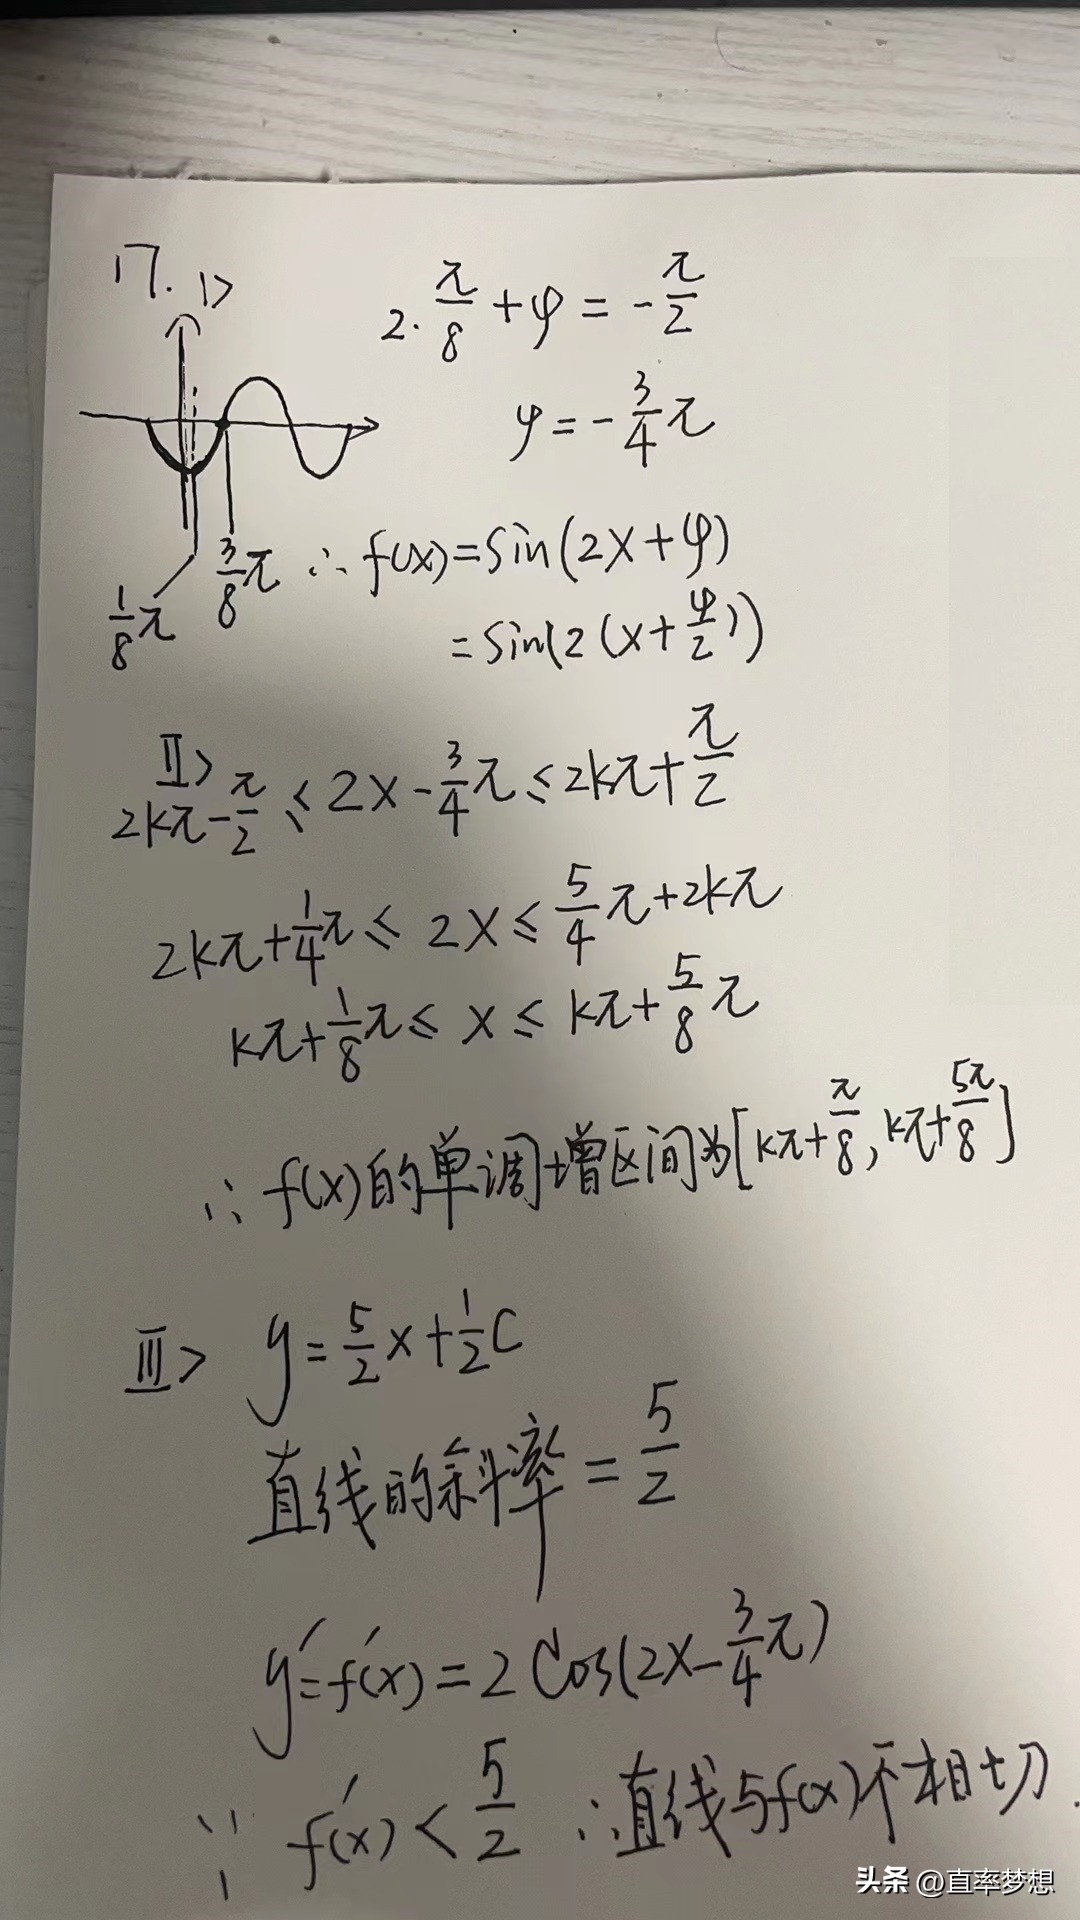 17. 1>
2·π/8+φ=-π/2
φ=-3/4π
1/8π
3/8π
∴f(x)=Sin(2x+φ)
=Sin(2(x+φ/2))
Ⅱ>
2kπ-π/2≤2x-3/4π≤2kπ+π/2
2kπ+1/4π≤2x≤5/4π+2kπ
kπ+1/8π≤x≤kπ+5/8π
∴f(x)的单调增区间为[kπ+π/8,kπ+5π/8]
Ⅲ> y=5/2x+1/2C
直线的斜率=5/2
y'=f'(x)=2Cos(2x-3/4π)
∵f'(x)<5/2 ∴直线与f(x)不相切.
头条 @直率梦想